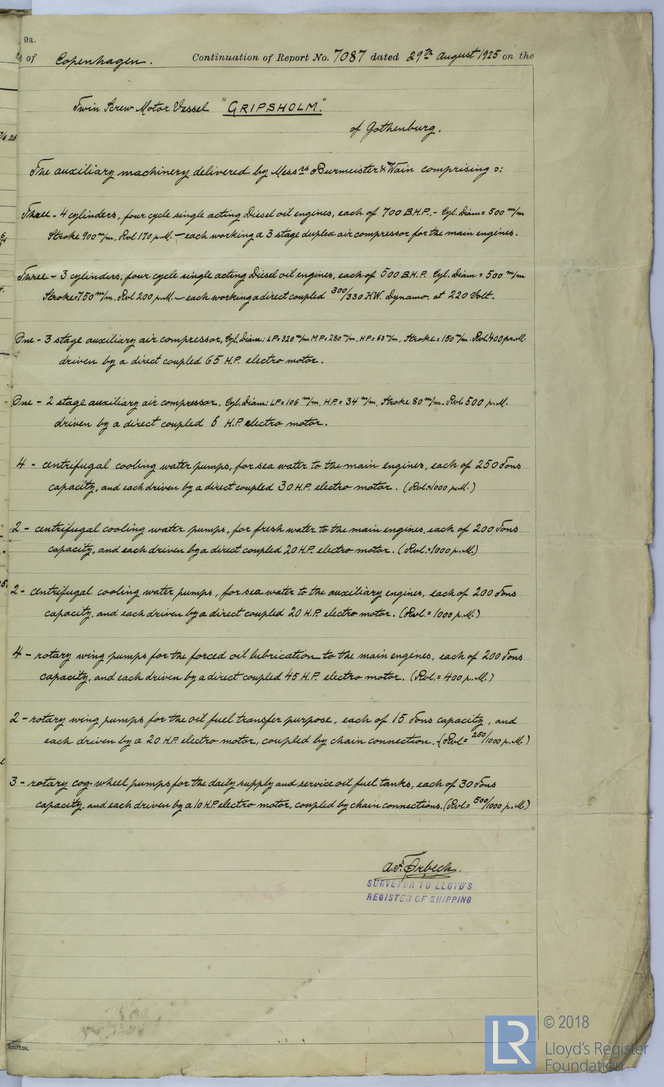 9a.
of Copenhagen. Continuation of Report No. 7087 dated 29th August 1925 on the
Twin Screw Motor Vessel "GRIPSHOLM."
of Gothenburg.
The auxiliary machinery delivered by Messrs Burmeister & Wain comprising :
Three - 4 cylinders, four cycle single acting Diesel oil engines, each of 700 B.H.P. - Cyl. Diam = 500 m/m
Stroke 900 m/m, Rvl 170 p.M. - each working a 3 stage duplex air compressor for the main engines.
Three - 3 cylinders, four cycle single acting Diesel oil engines, each of 500 B.H.P. Cyl. Diam = 500 m/m
Stroke = 750 m/m. Rvl 200 p.M. - each working a direct coupled 300/330 KW. Dynamo. at 220 Volt.
One - 3 stage auxiliary air compressor, Cyl. Diam: LP = 320 m/m M.P = 280 m/m, H.P = 65 m/m, Stroke = 150 m/m. Rvl 400 p.M
driven by a direct coupled 65 H.P. electro motor.
One - 2 stage auxiliary air compressor, Cyl. Diam: LP = 106 m/m, H.P. = 34 m/m, Stroke 80 m/m. Rvl 500 p.M.
driven by a direct coupled 5 H.P. electro motor.
4 - centrifugal cooling water pumps, for sea water to the main engines, each of 250 Tons
capacity, and each driven by a direct coupled 30 H.P. electro motor. (Rvl. = 1000 p.M.)
2 - centrifugal cooling water pumps, for fresh water to the main engines, each of 200 Tons
capacity, and each driven by a direct coupled 20 H.P. electro motor. (Rvl. = 1000 p.M)
2 - centrifugal cooling water pumps, for sea water to the auxiliary engines, each of 200 Tons
capacity, and each driven by a direct coupled 20 H.P. electro motor. (Rvl. = 1000 p.M.)
4 - rotary wing pumps for the forced oil lubrication to the main engines, each of 200 Tons
capacity, and each driven by a direct coupled 45 H.P. electro motor. (Rvl. = 400 p.M.)
2 - rotary wing pumps for the oil fuel transfer purpose, each of 15 Tons capacity, and
each driven by a 20 H.P. electro motor, coupled by chain connection. (Rvl = 250/1000 p.M.)
3 - rotary cog-wheel pumps for the daily supply and service oil fuel tanks, each of 30 Tons
capacity, and each driven by a 10 H.P. electro motor, coupled by chain connections. (Rvl = 500/1000 p.M)
Orbeck.
SURVEYOR TO LLOYD'S
REGISTER OF SHIPPING
LR © 2018
Lloyd's Register
Foundation